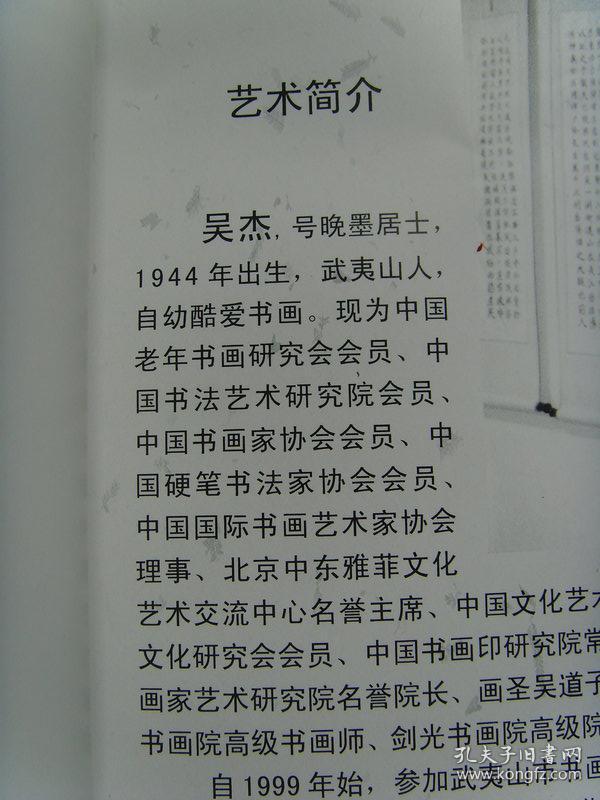 艺术简介
吴杰,号晚墨居士，
1944年出生，武夷山人，
自幼酷爱书画。现为中国
老年书画研究会会员、中
国书法艺术研究院会员、
中国书画家协会会员、中
国硬笔书法家协会会员、
中国国际书画艺术家协会
理事、北京中东雅菲文化
艺术交流中心名誉主席、中国文化艺
文化研究会会员、中国书画印研究院常
画家艺术研究院名誉院长、画圣吴道子
书画院高级书画师、剑光书画院高级院
自1999年始，参加武夷山市书画
孔夫子旧书网
www.kongfz.com